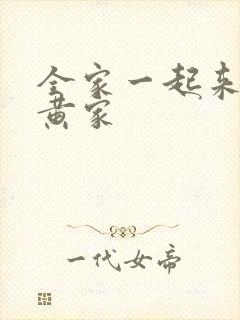 全家一起来
黄家
一代女帝